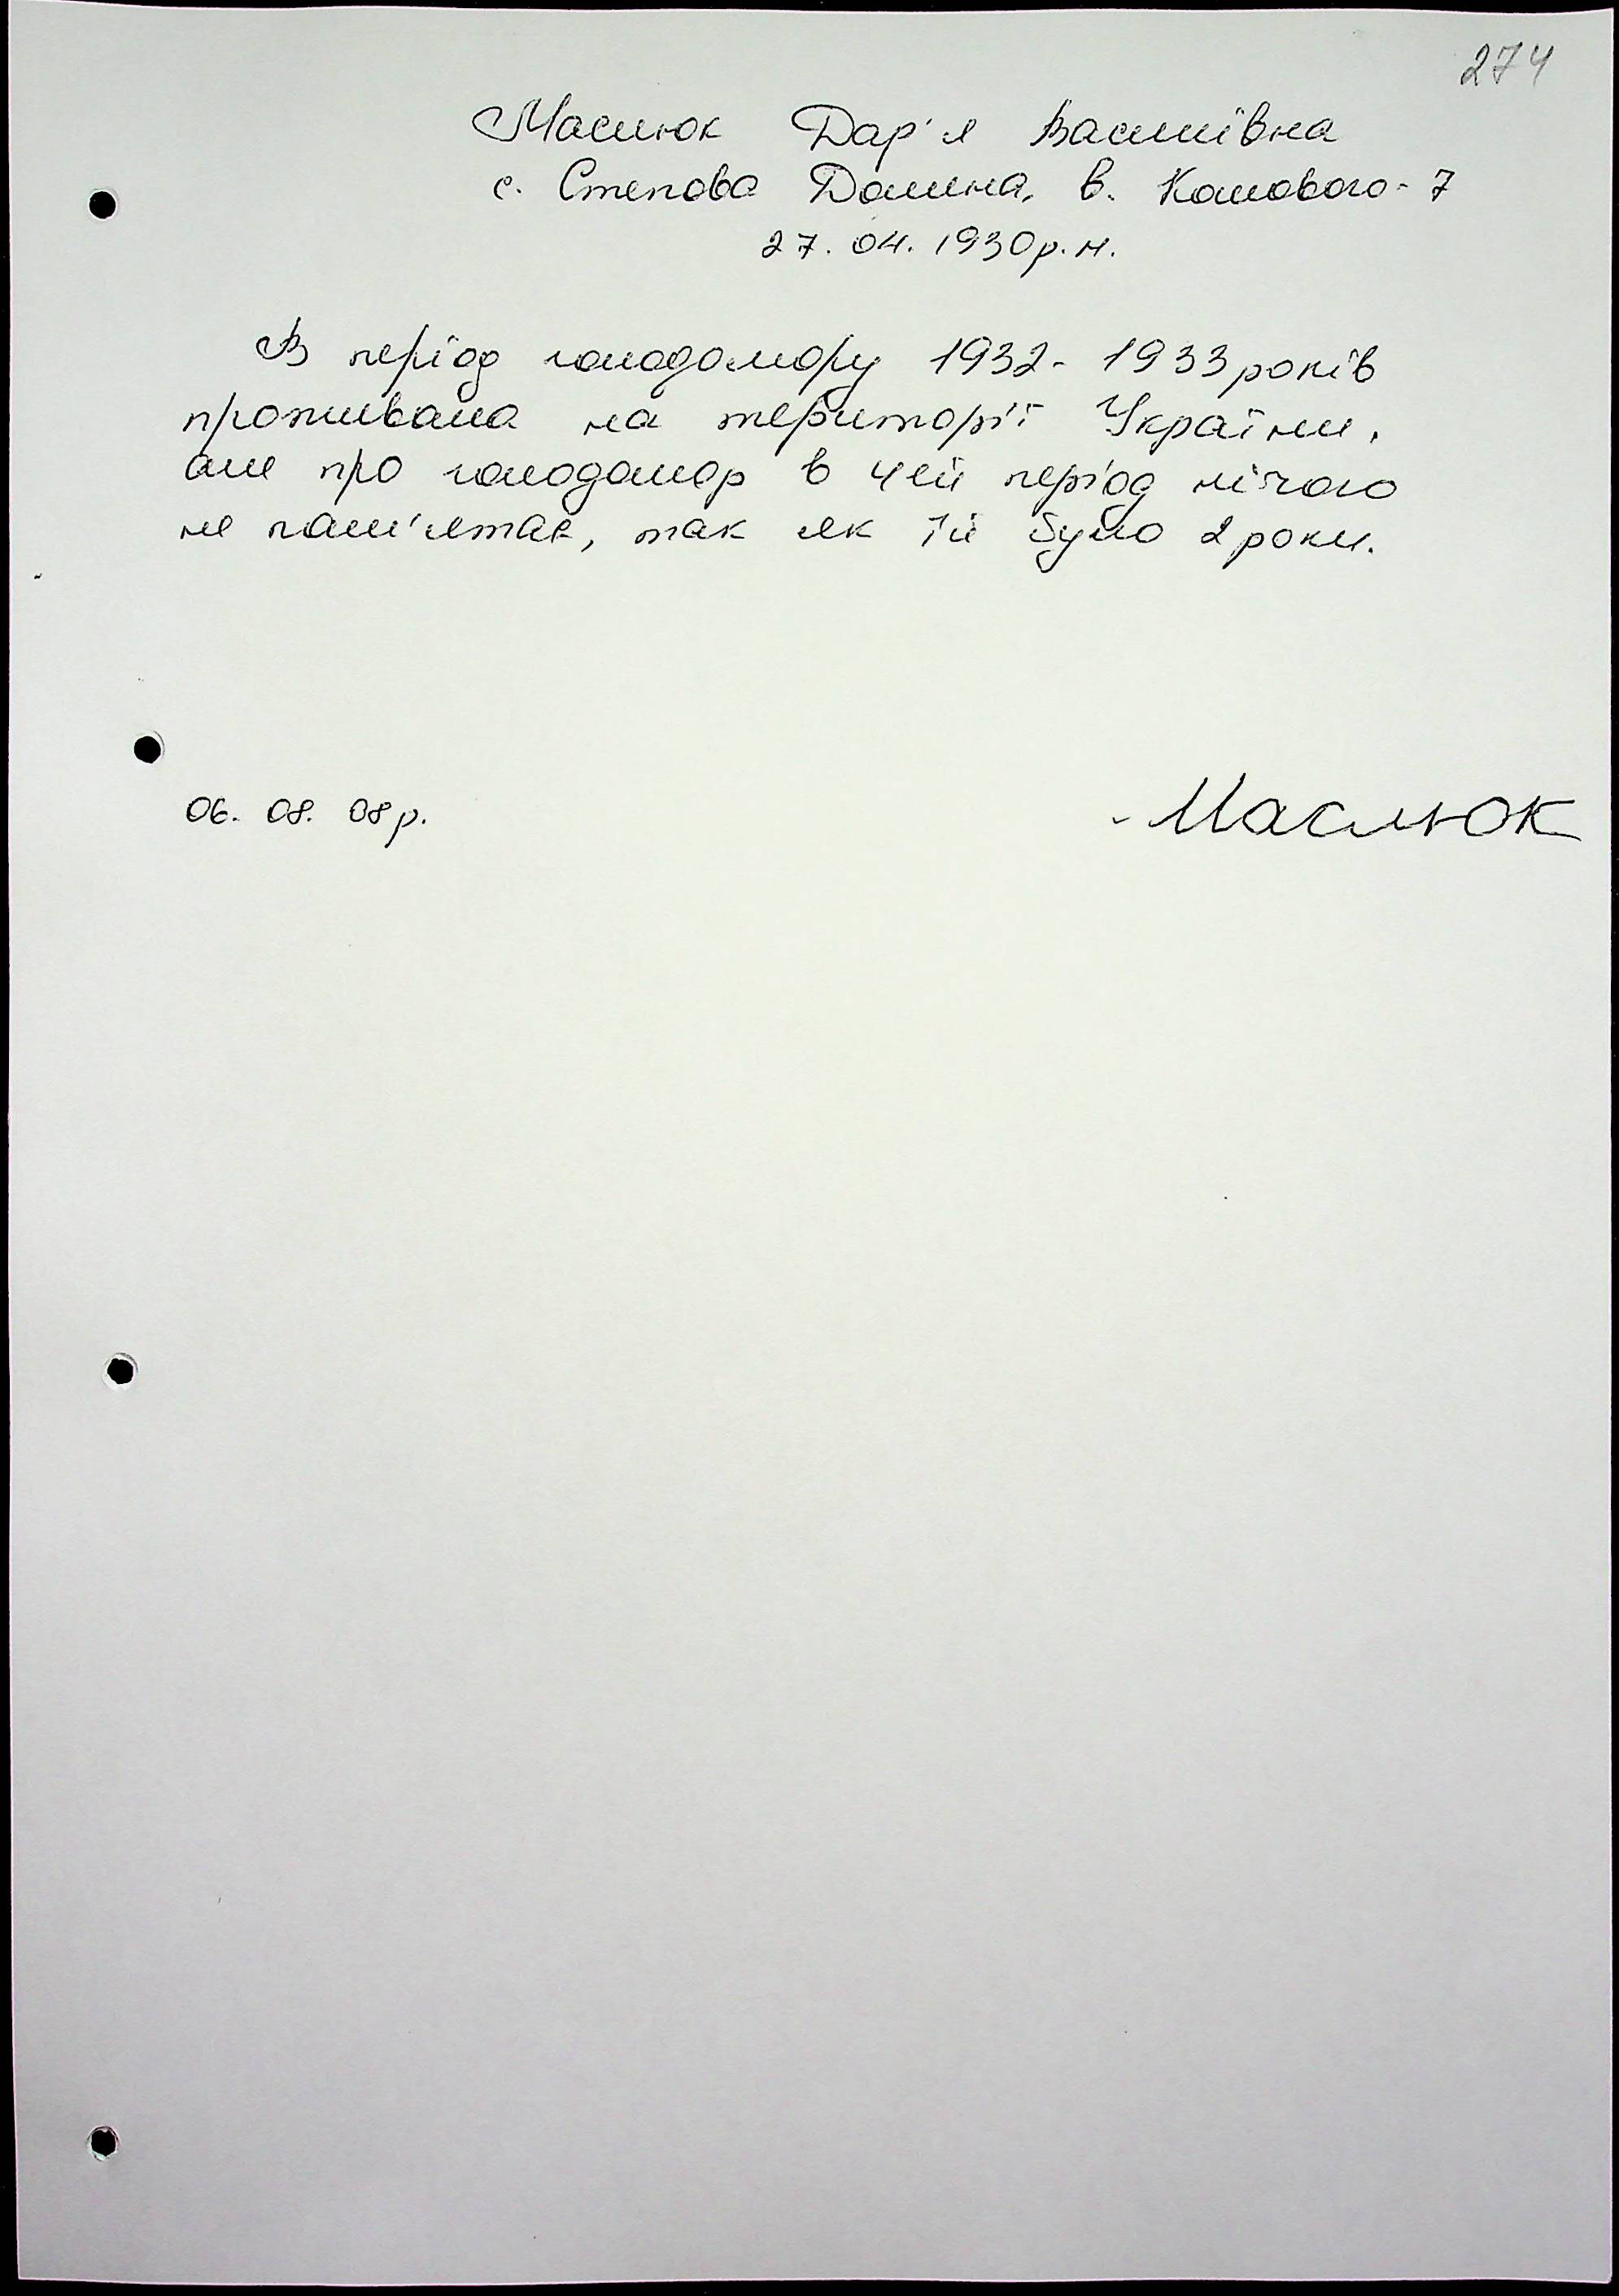 274
Маслюк Дар'я Василівна
с. Степова Долина, в. Кольового - 7
27. 04. 1930 р. н.
В період голодомору 1932 - 1933 років
проживала на території України,
але про голодомор в цей період нічого
не пам'ятає, так як їй було 2 роки.
06. 08. 08 р.
Маслюк